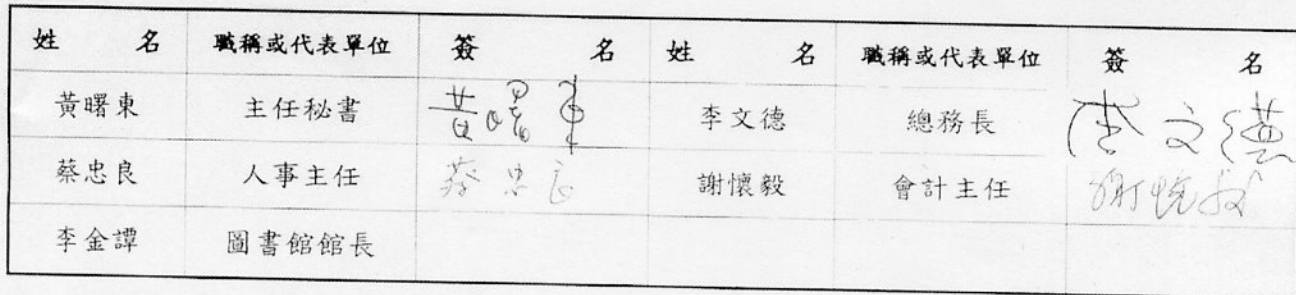 姓 名 職稱或代表單位 簽 名 姓 名 職稱或代表單位 簽 名
黃曙東 主任秘書 黃曙東 李文德 總務長 李文德
蔡忠良 人事主任 蔡忠良 謝懷毅 會計主任 謝懷毅
李金譚 圖書館館長